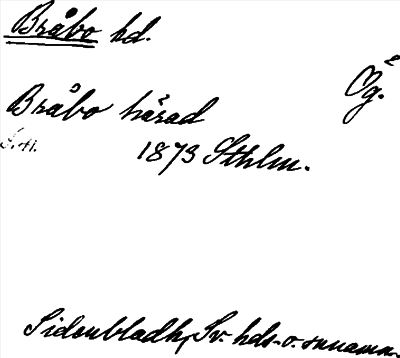 Bråbo hd.
Ög.
Bråbo härad
1873 Sthlm.
Sidenbladh, Sv. hds- o. snnamn.